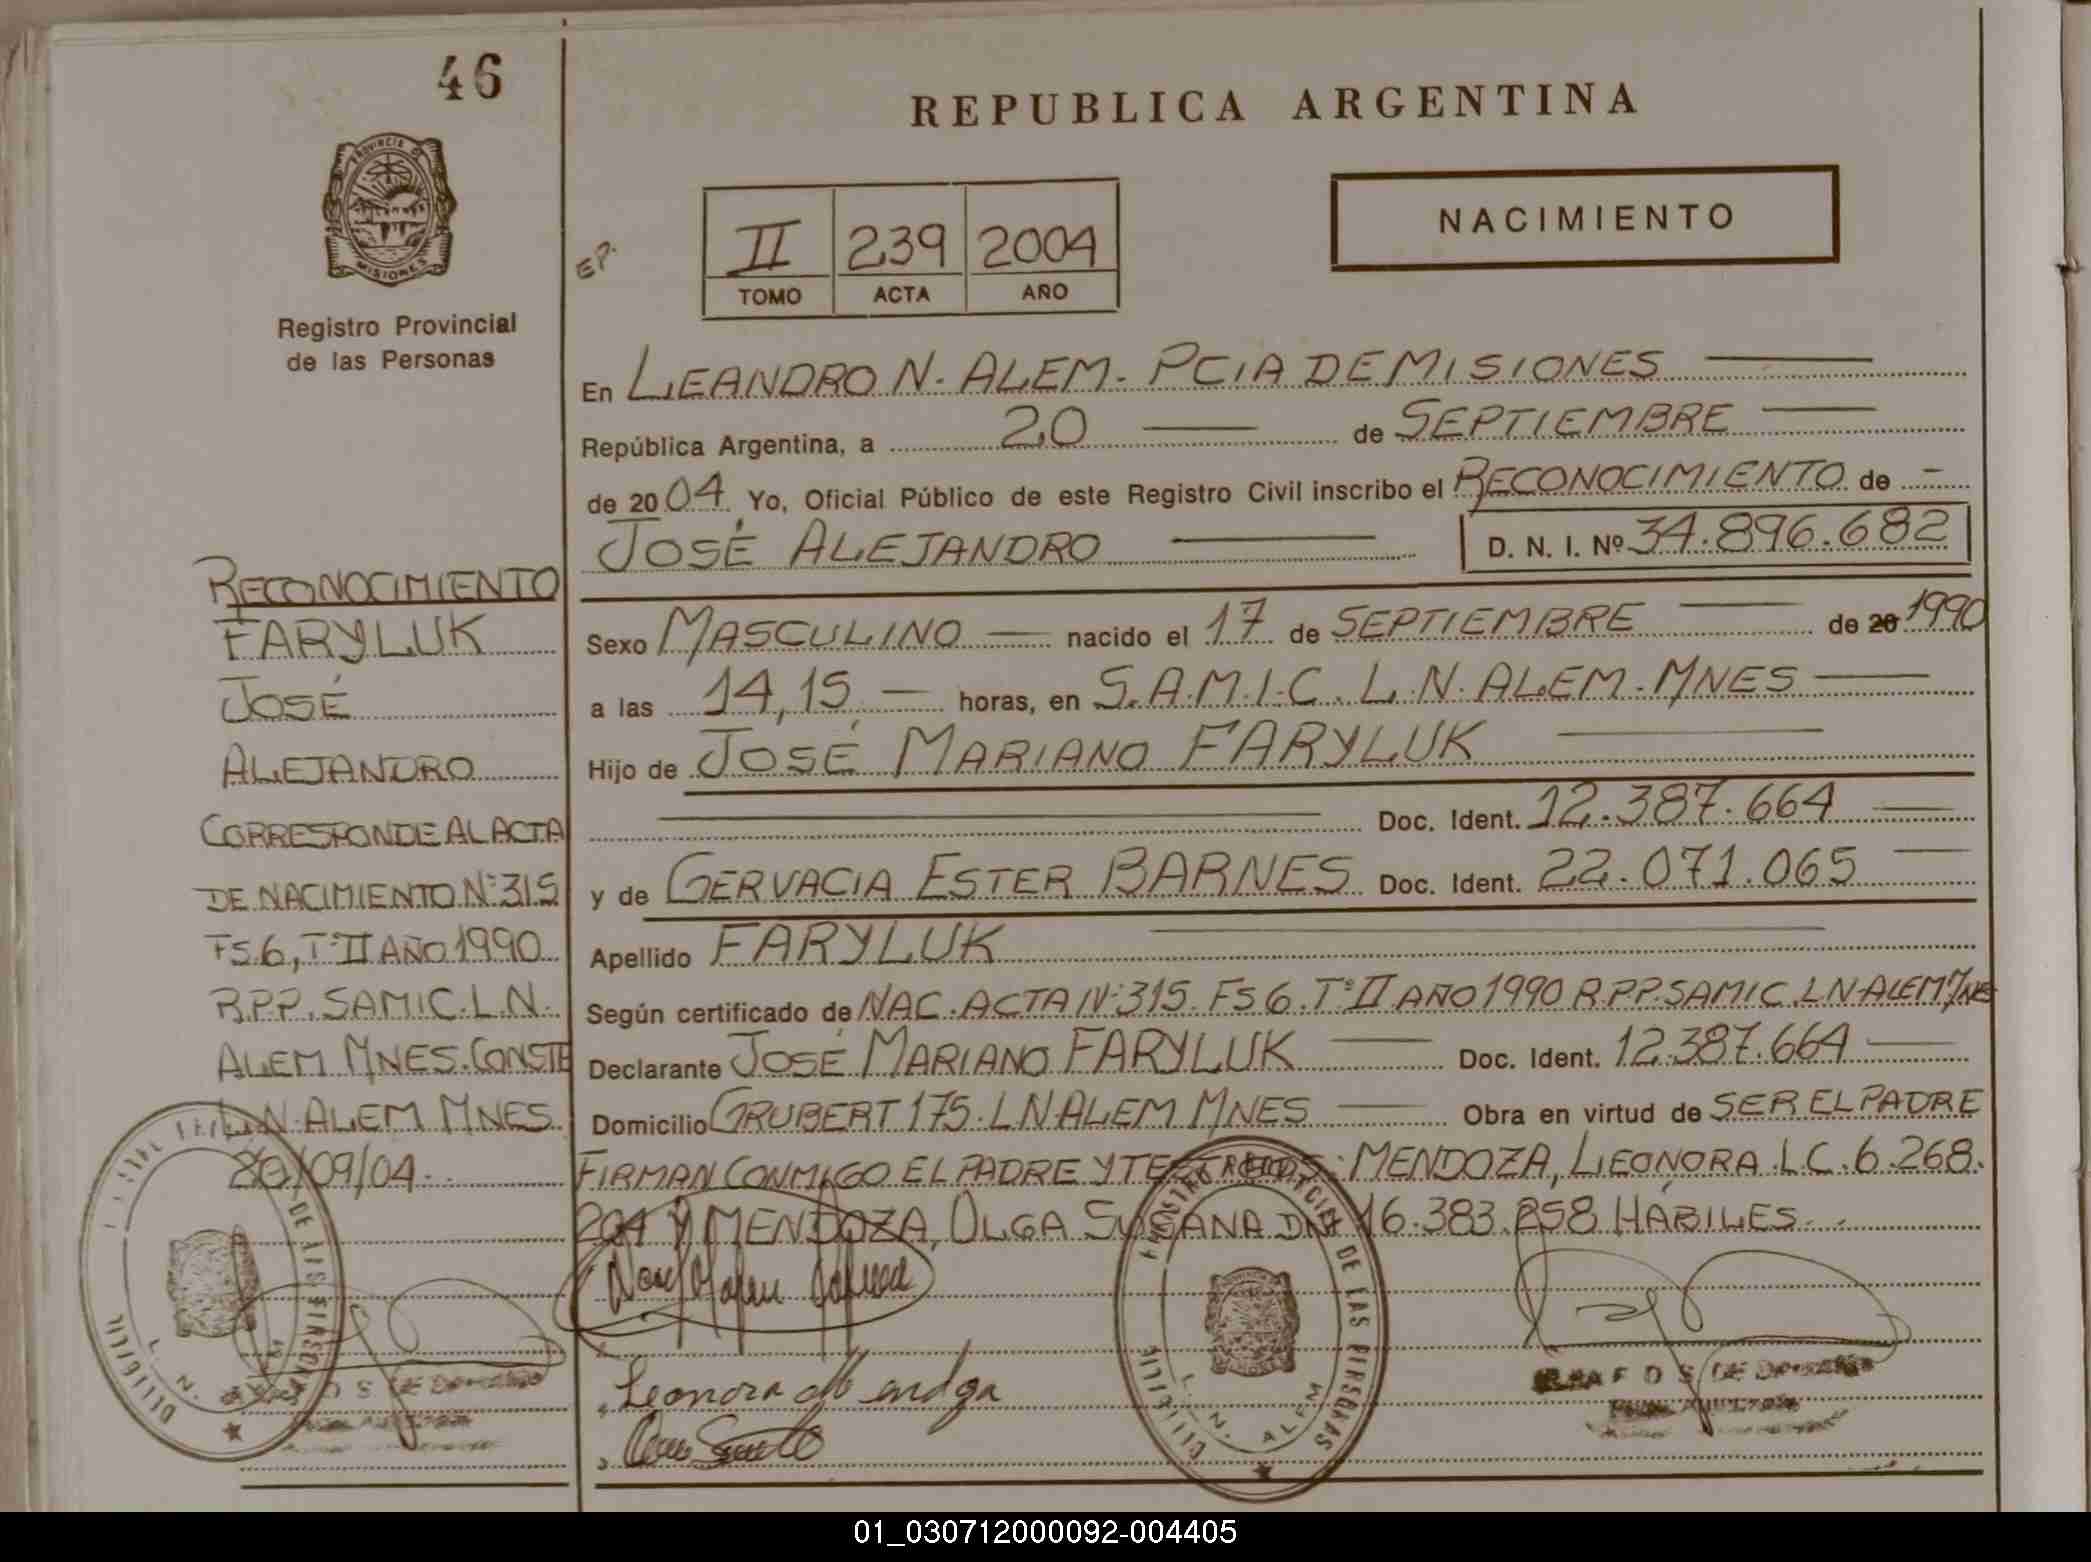 46
PROVINCIA DE
MISIONES
Registro Provincial
de las Personas
RECONOCIMIENTO
FARYLUK
JOSÉ
ALEJANDRO
CORRESPONDE AL ACTA
DE NACIMIENTO Nº 315
FS 6, Tº II AÑO 1990
R.P.P. SAMIC. L.N.
ALEM MNES. CONSTE
L.N. ALEM MNES.
20/09/04.
REPUBLICA ARGENTINA
NACIMIENTO
EP.
II 239 2004
TOMO ACTA AÑO
En LEANDRO N. ALEM. PCIA DE MISIONES
República Argentina, a 20 de SEPTIEMBRE
de 2004 Yo, Oficial Público de este Registro Civil inscribo el RECONOCIMIENTO de -
JOSÉ ALEJANDRO D. N. I. Nº 34.896.682
Sexo MASCULINO nacido el 17 de SEPTIEMBRE de 20 1990
a las 14,15 horas, en S.A.M.I.C. L.N. ALEM. MNES
Hijo de JOSÉ MARIANO FARYLUK
Doc. Ident. 12.387.664
y de GERVACIA ESTER BARNES Doc. Ident. 22.071.065
Apellido FARYLUK
Según certificado de NAC. ACTA Nº 315. FS 6. Tº II AÑO 1990 R.P.P. SAMIC. LN ALEM MNES
Declarante JOSÉ MARIANO FARYLUK Doc. Ident. 12.387.664
Domicilio GRUBERT 175. LN ALEM MNES Obra en virtud de SER EL PADRE
FIRMAN CONMIGO EL PADRE Y TESTIGOS: MENDOZA, LEONORA L.C. 6.268.
204 Y MENDOZA, OLGA SUSANA DNI 16.383.858 HÁBILES.
Leonora Mendoza
DE LAS PERSONAS
L. N. ALEM
01_030712000092-004405